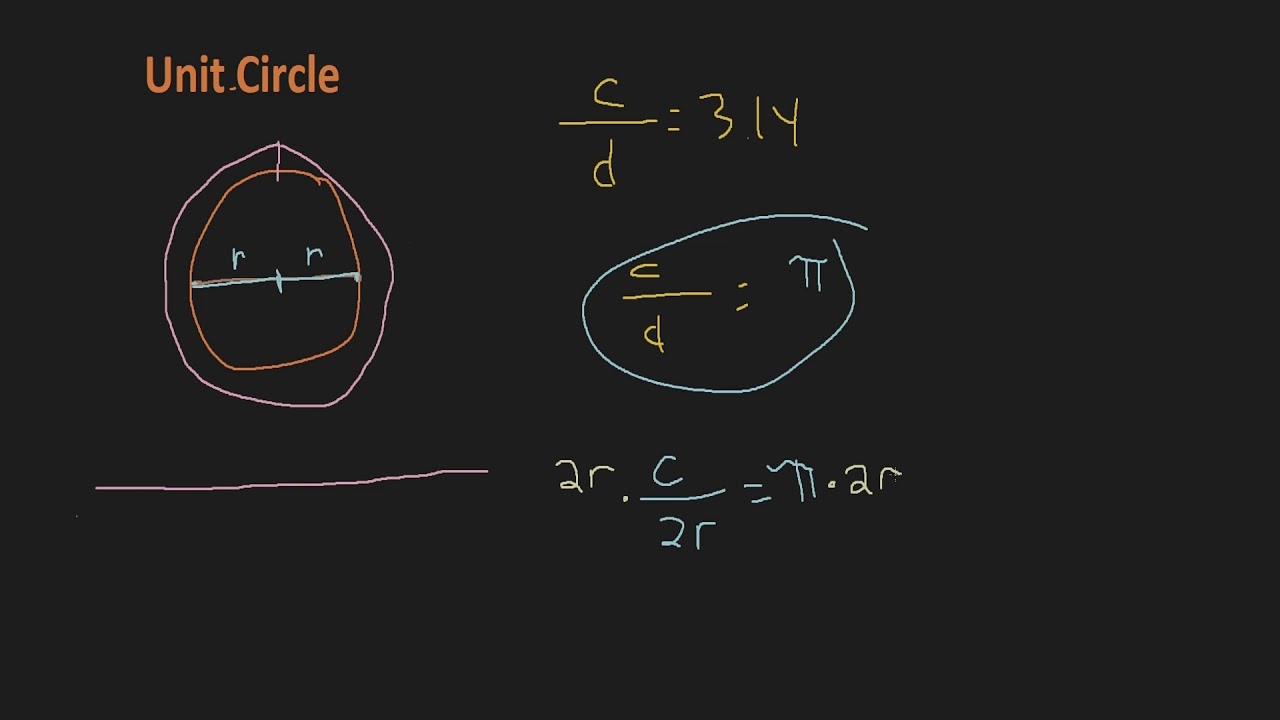 Unit Circle
r r
c/d = 3.14
c/d = π
2r · c/2r = π · 2r